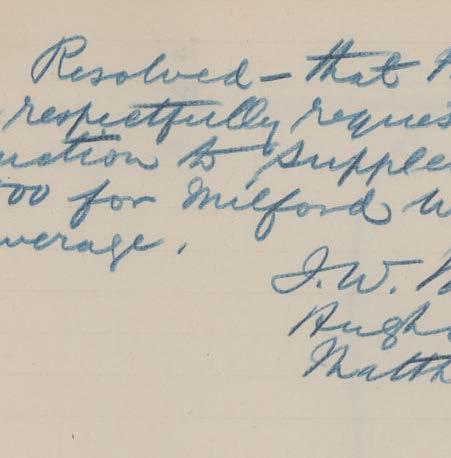 Resolved — that
respectfully reques
uction to supple
00 for Milford W
werage.
J. W.
Hugh
Matth